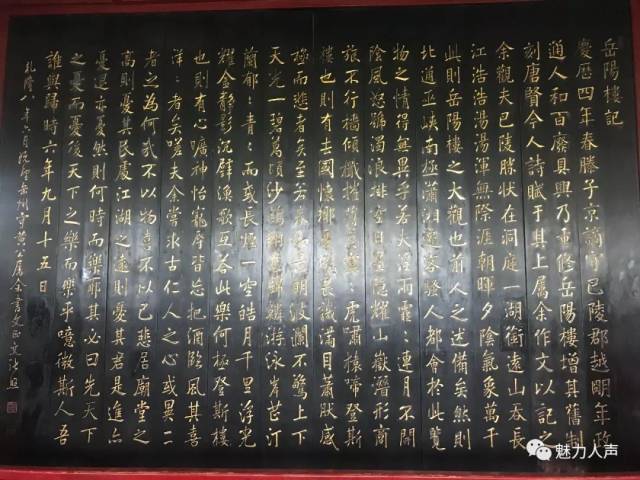 岳陽樓記
慶曆四年春滕子京謫守巴陵郡越明年政
通人和百廢具興乃重修岳陽樓增其舊制
刻唐賢今人詩賦于其上屬余作文以記之
余觀夫巴陵勝狀在洞庭一湖銜遠山吞長
江浩浩湯湯渾無際涯朝暉夕陰氣象萬千
此則岳陽樓之大觀也前人之述備矣然則
北通巫峽南極瀟湘遷客騷人都會於此覽
物之情得無異乎若夫淫雨霏:連月不開
陰風怒號濁浪排空日星隱耀山嶽潛形商
旅不行檣傾楫摧薄暮冥:虎嘯猿啼登斯
樓也則有去國懷鄉憂讒畏譏滿目蕭然感
極而悲者矣至若春和景明波瀾不驚上下
天光一碧萬頃沙鷗翔集錦鱗游泳岸芷汀
蘭郁:青:而或長煙一空皓月千里浮光
耀金靜影沉璧漁歌互答此樂何極登斯樓
也則有心曠神怡寵辱皆忘把酒臨風其喜
洋:者矣嗟夫余嘗求古仁人之心或異二
者之為何哉不以物喜不以己悲居廟堂之
高則憂其民處江湖之遠則憂其君是進亦
憂退亦憂然則何時而樂耶其必曰先天下
之憂而憂後天下之樂而樂乎噫微斯人吾
誰與歸時六年九月十五日
乾隆八年六月岳州守黃公屬余書張照
魅力人声